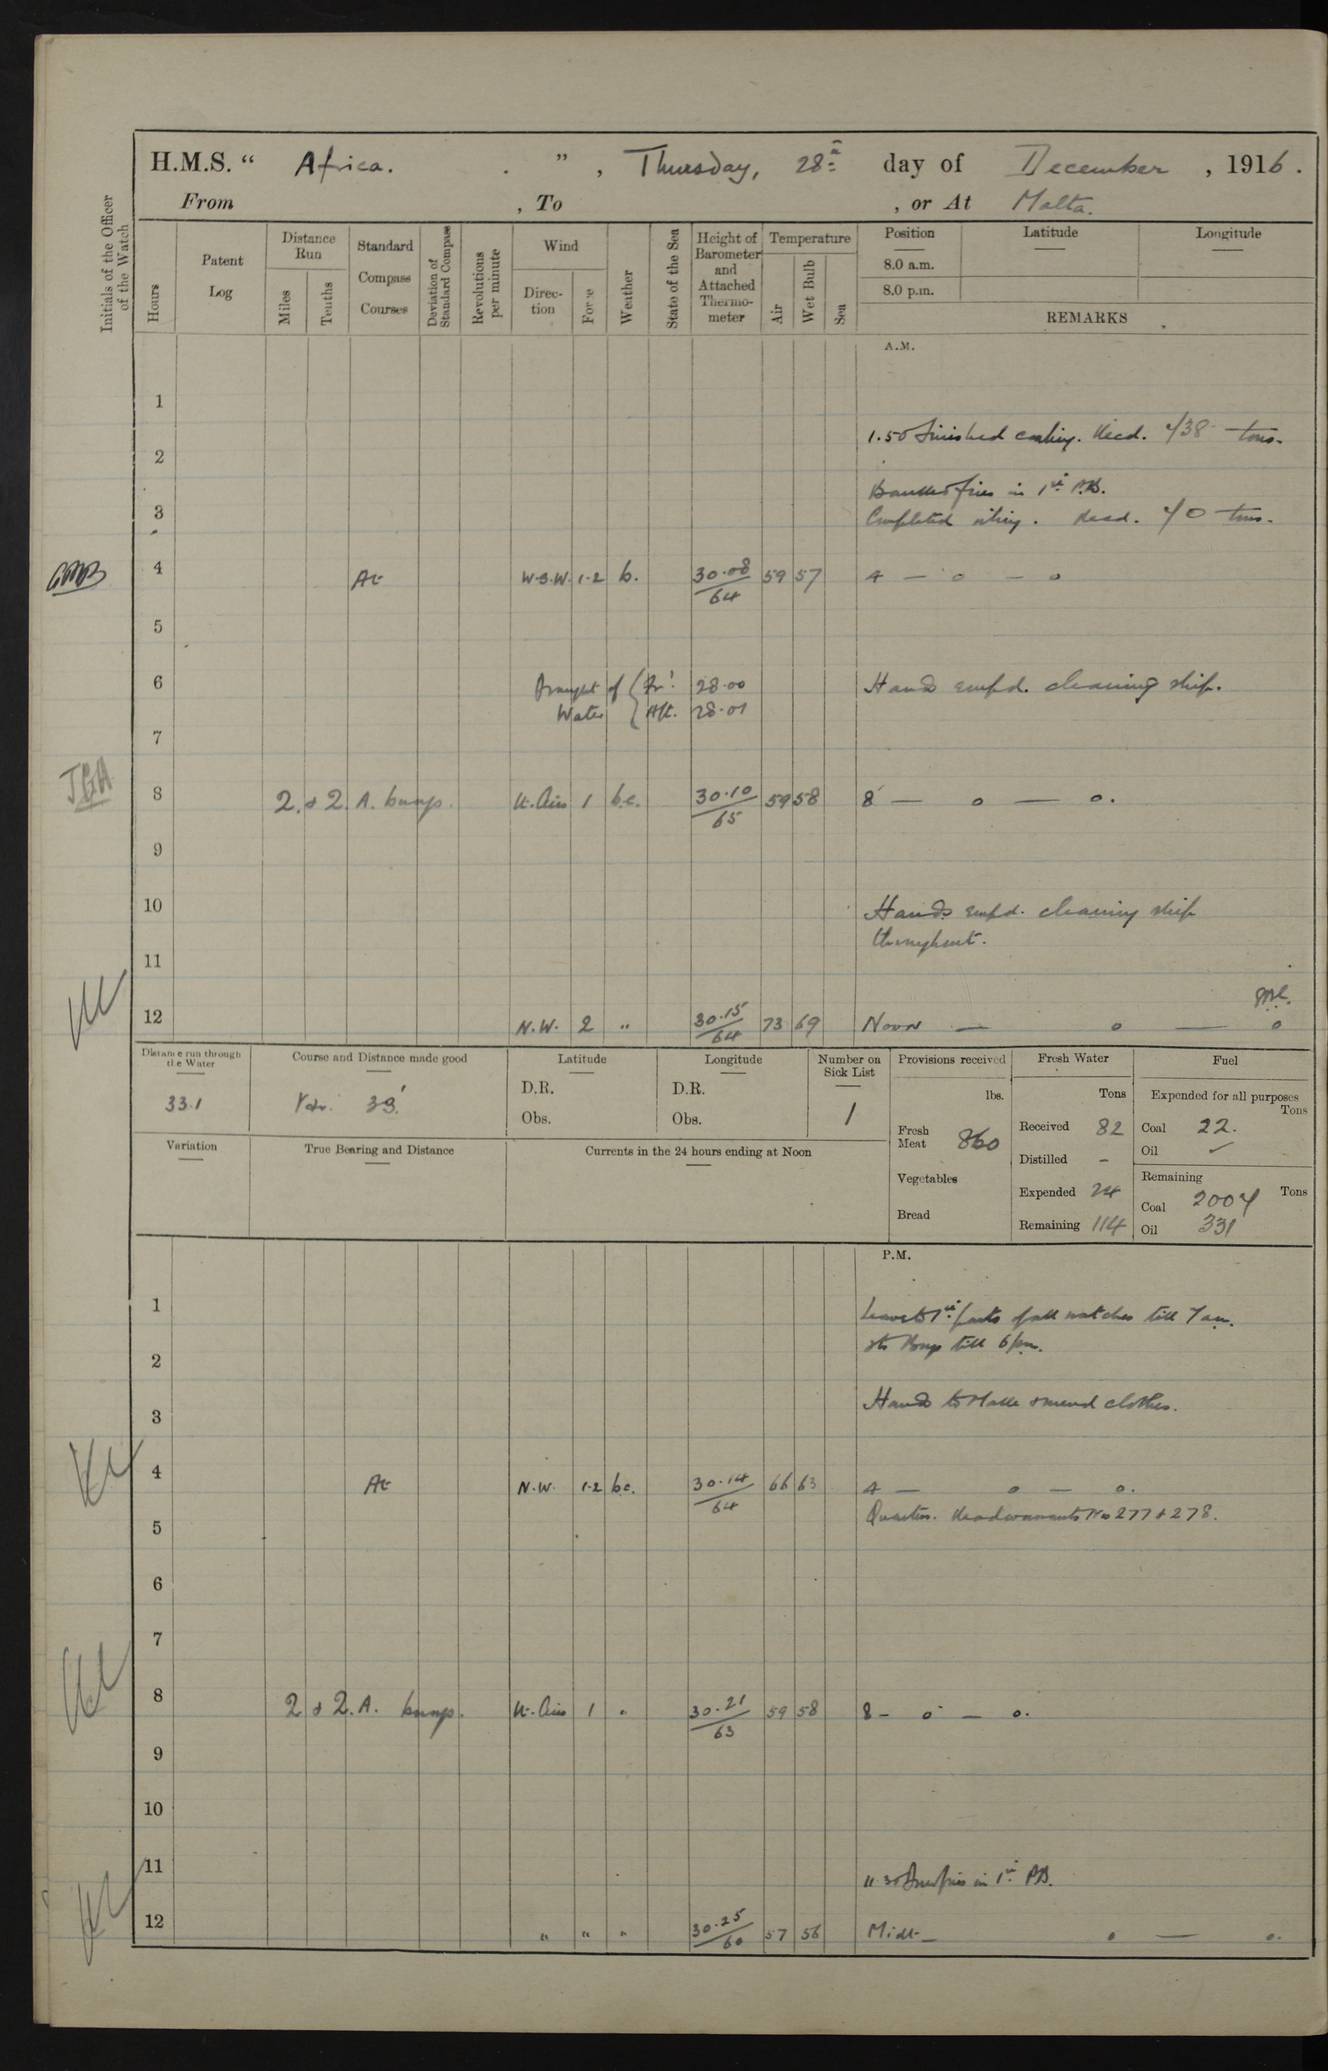 H.M.S. “ Africa. ” , Thursday, 28th day of December , 1916.
From , To , or At Malta.
Initials of the Officer of the Watch
Hours
Patent Log
Distance Run
Miles
Tenths
Standard Compass Courses
Deviation of Standard Compass
Revolutions per minute
Wind
Direction
Force
Weather
State of the Sea
Height of Barometer and Attached Thermometer
Temperature
Air
Wet Bulb
Sea
Position Latitude Longitude
8.0 a.m.
8.0 p.m.
REMARKS
A.M.
1
1.50 Finished coaling. Recd. 438 tons.
2
Banked fires in 1st B.R.
3 Completed oiling. Recd. 40 tons.
4 At W.S.W. 1-2 b. 30.08/64 59 57 4 — o — o
5
6 Draught of Water { For'd 28.00 Hands empd. cleaning ship.
Aft. 28.01
7
JGA 8 2 & 2. A. bungs. Lt. Airs 1 b.c. 30.10/65 59 58 8 — o — o.
9
10 Hands empd. cleaning ship
throughout.
11
12 N.W. 2 " 30.15/64 73 69 Noon — o — o
Distance run through the Water
33.1
Course and Distance made good
39'
Latitude
D.R.
Obs.
Longitude
D.R.
Obs.
Number on Sick List
1
Provisions received
lbs.
Fresh Meat 860
Vegetables
Bread
Fresh Water
Tons
Received 82
Distilled -
Expended 24
Remaining 114
Fuel
Expended for all purposes
Tons
Coal 22.
Oil
Remaining
Tons
Coal 2004
Oil 331
Variation
True Bearing and Distance
Currents in the 24 hours ending at Noon
P.M.
1 Leave to 1st parts of all watches till 7 am.
2 till 6 pm.
3 Hands to make & mend clothes.
4 At N.W. 1-2 b.c. 30.14/64 66 63 4 — o — o.
5 Quarters. Read warrants Nos 277 & 278.
6
7
8 2 & 2. A. bungs. Lt. Airs 1 " 30.21/63 59 58 8 — o — o.
9
10
11 11.30 Drew fires in 1st B.R.
12 " " " 30.25/60 57 56 Midt — o — o.